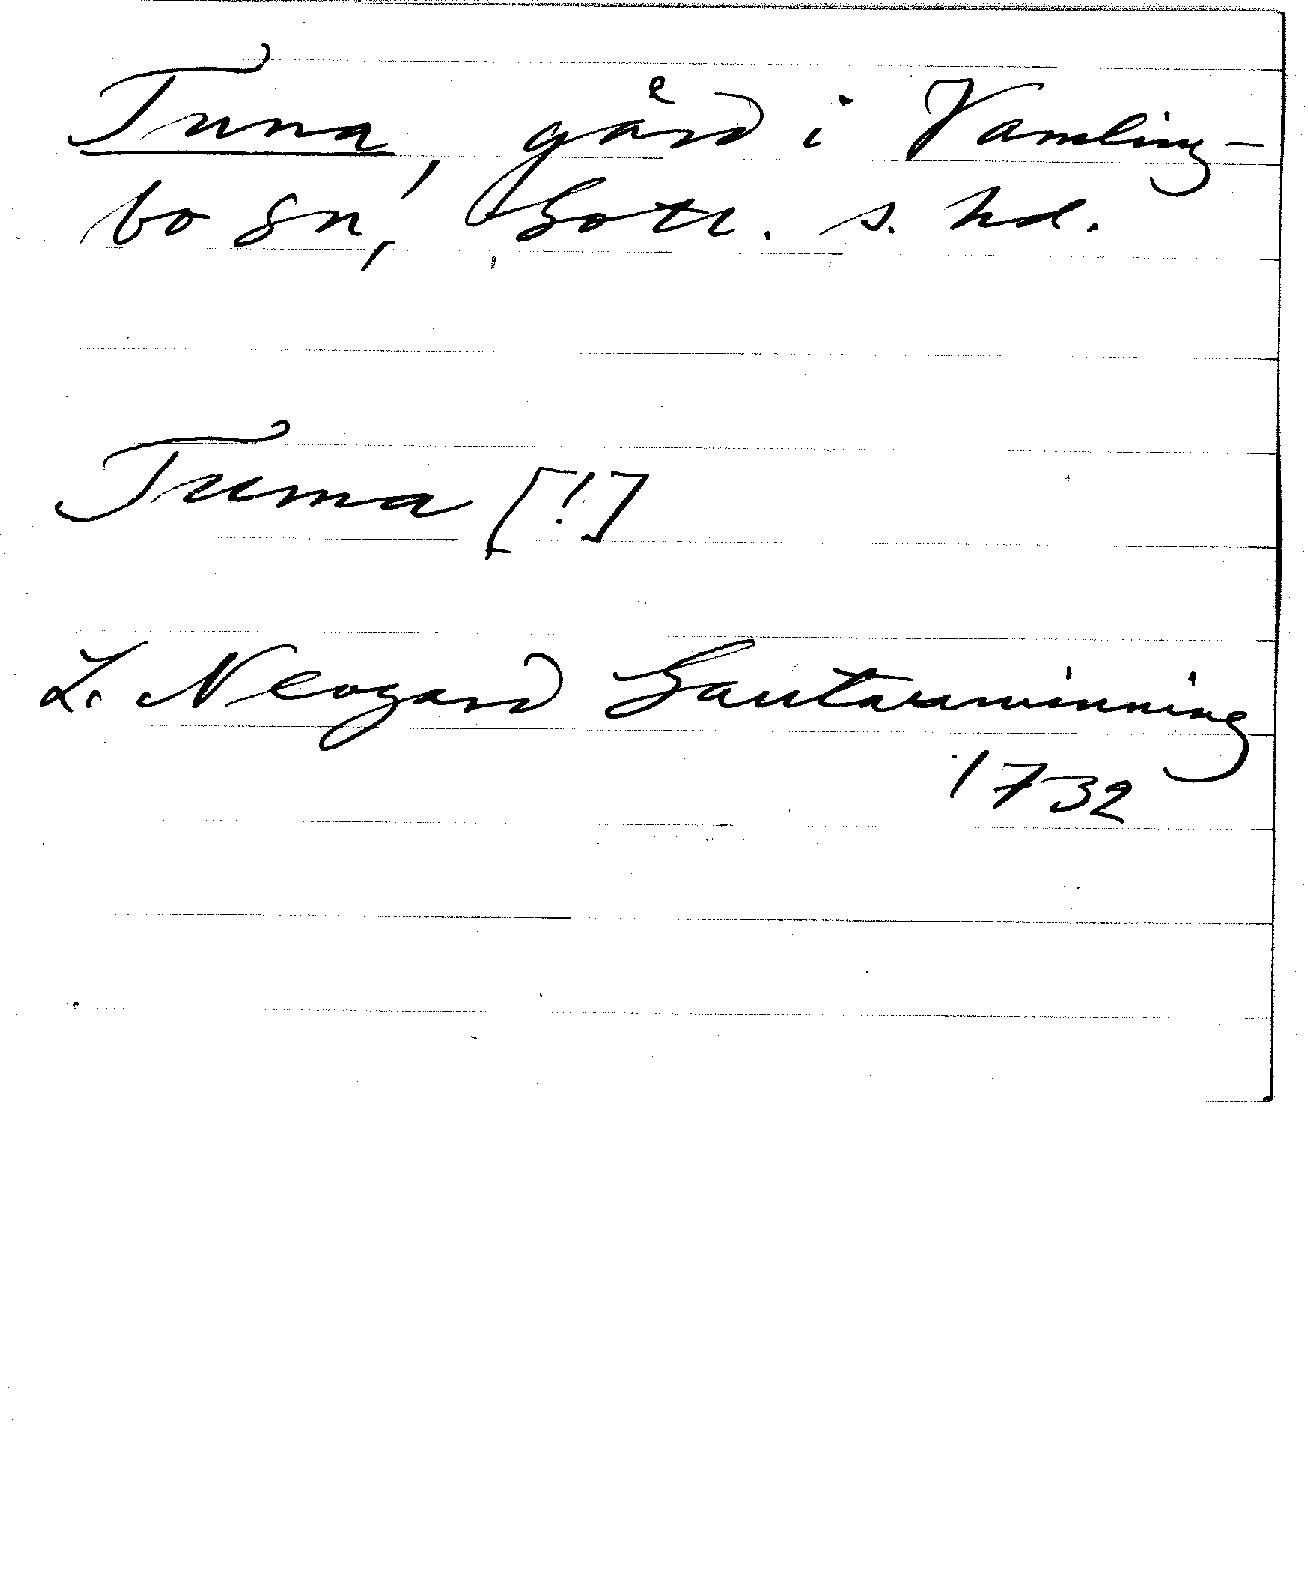 Tuna, gård i Vamling-
bo sn, Gotl. s. hd.
Tuma [!]
L. Neogard Gautauminning
1732